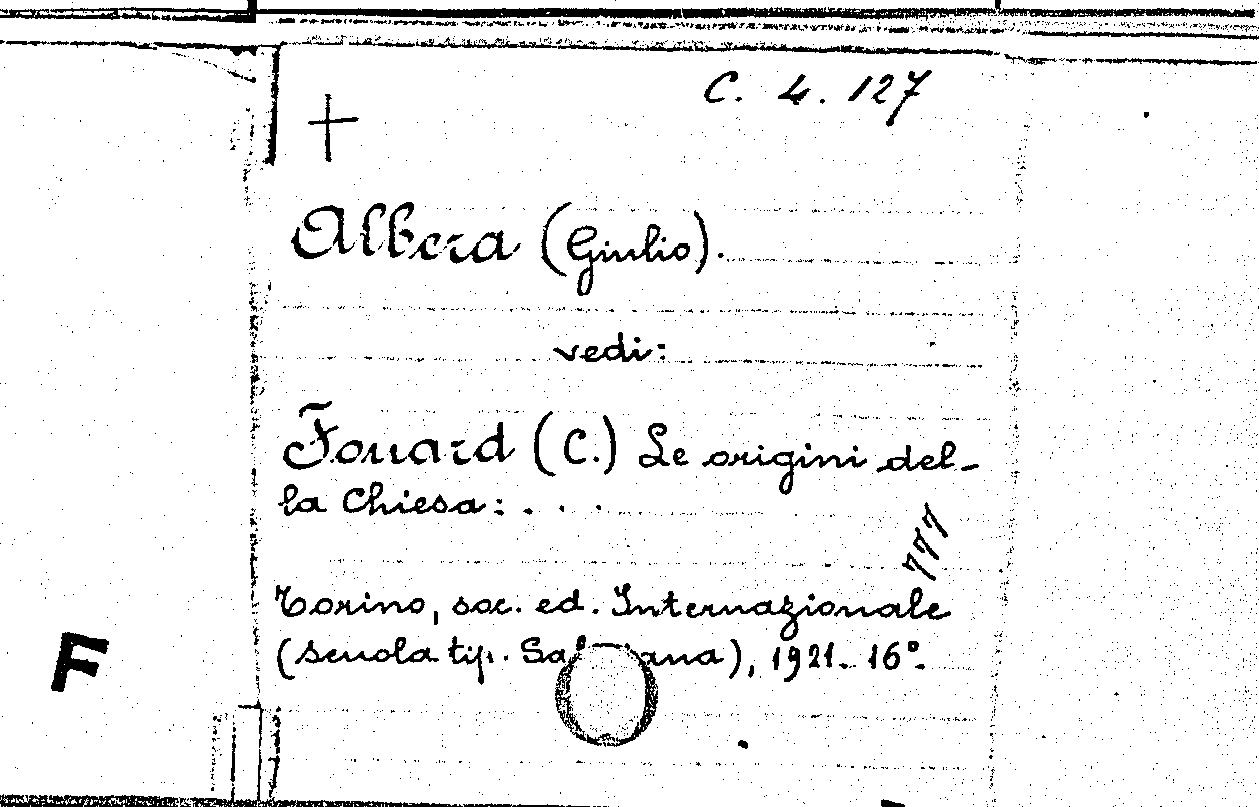 C. 4. 127
Albera (Giulio).
vedi:
Fouard (C.) Le origini del-
la Chiesa: . . .
777
Torino, soc. ed. Internazionale
(scuola tip. ), 1921. 16º.
F